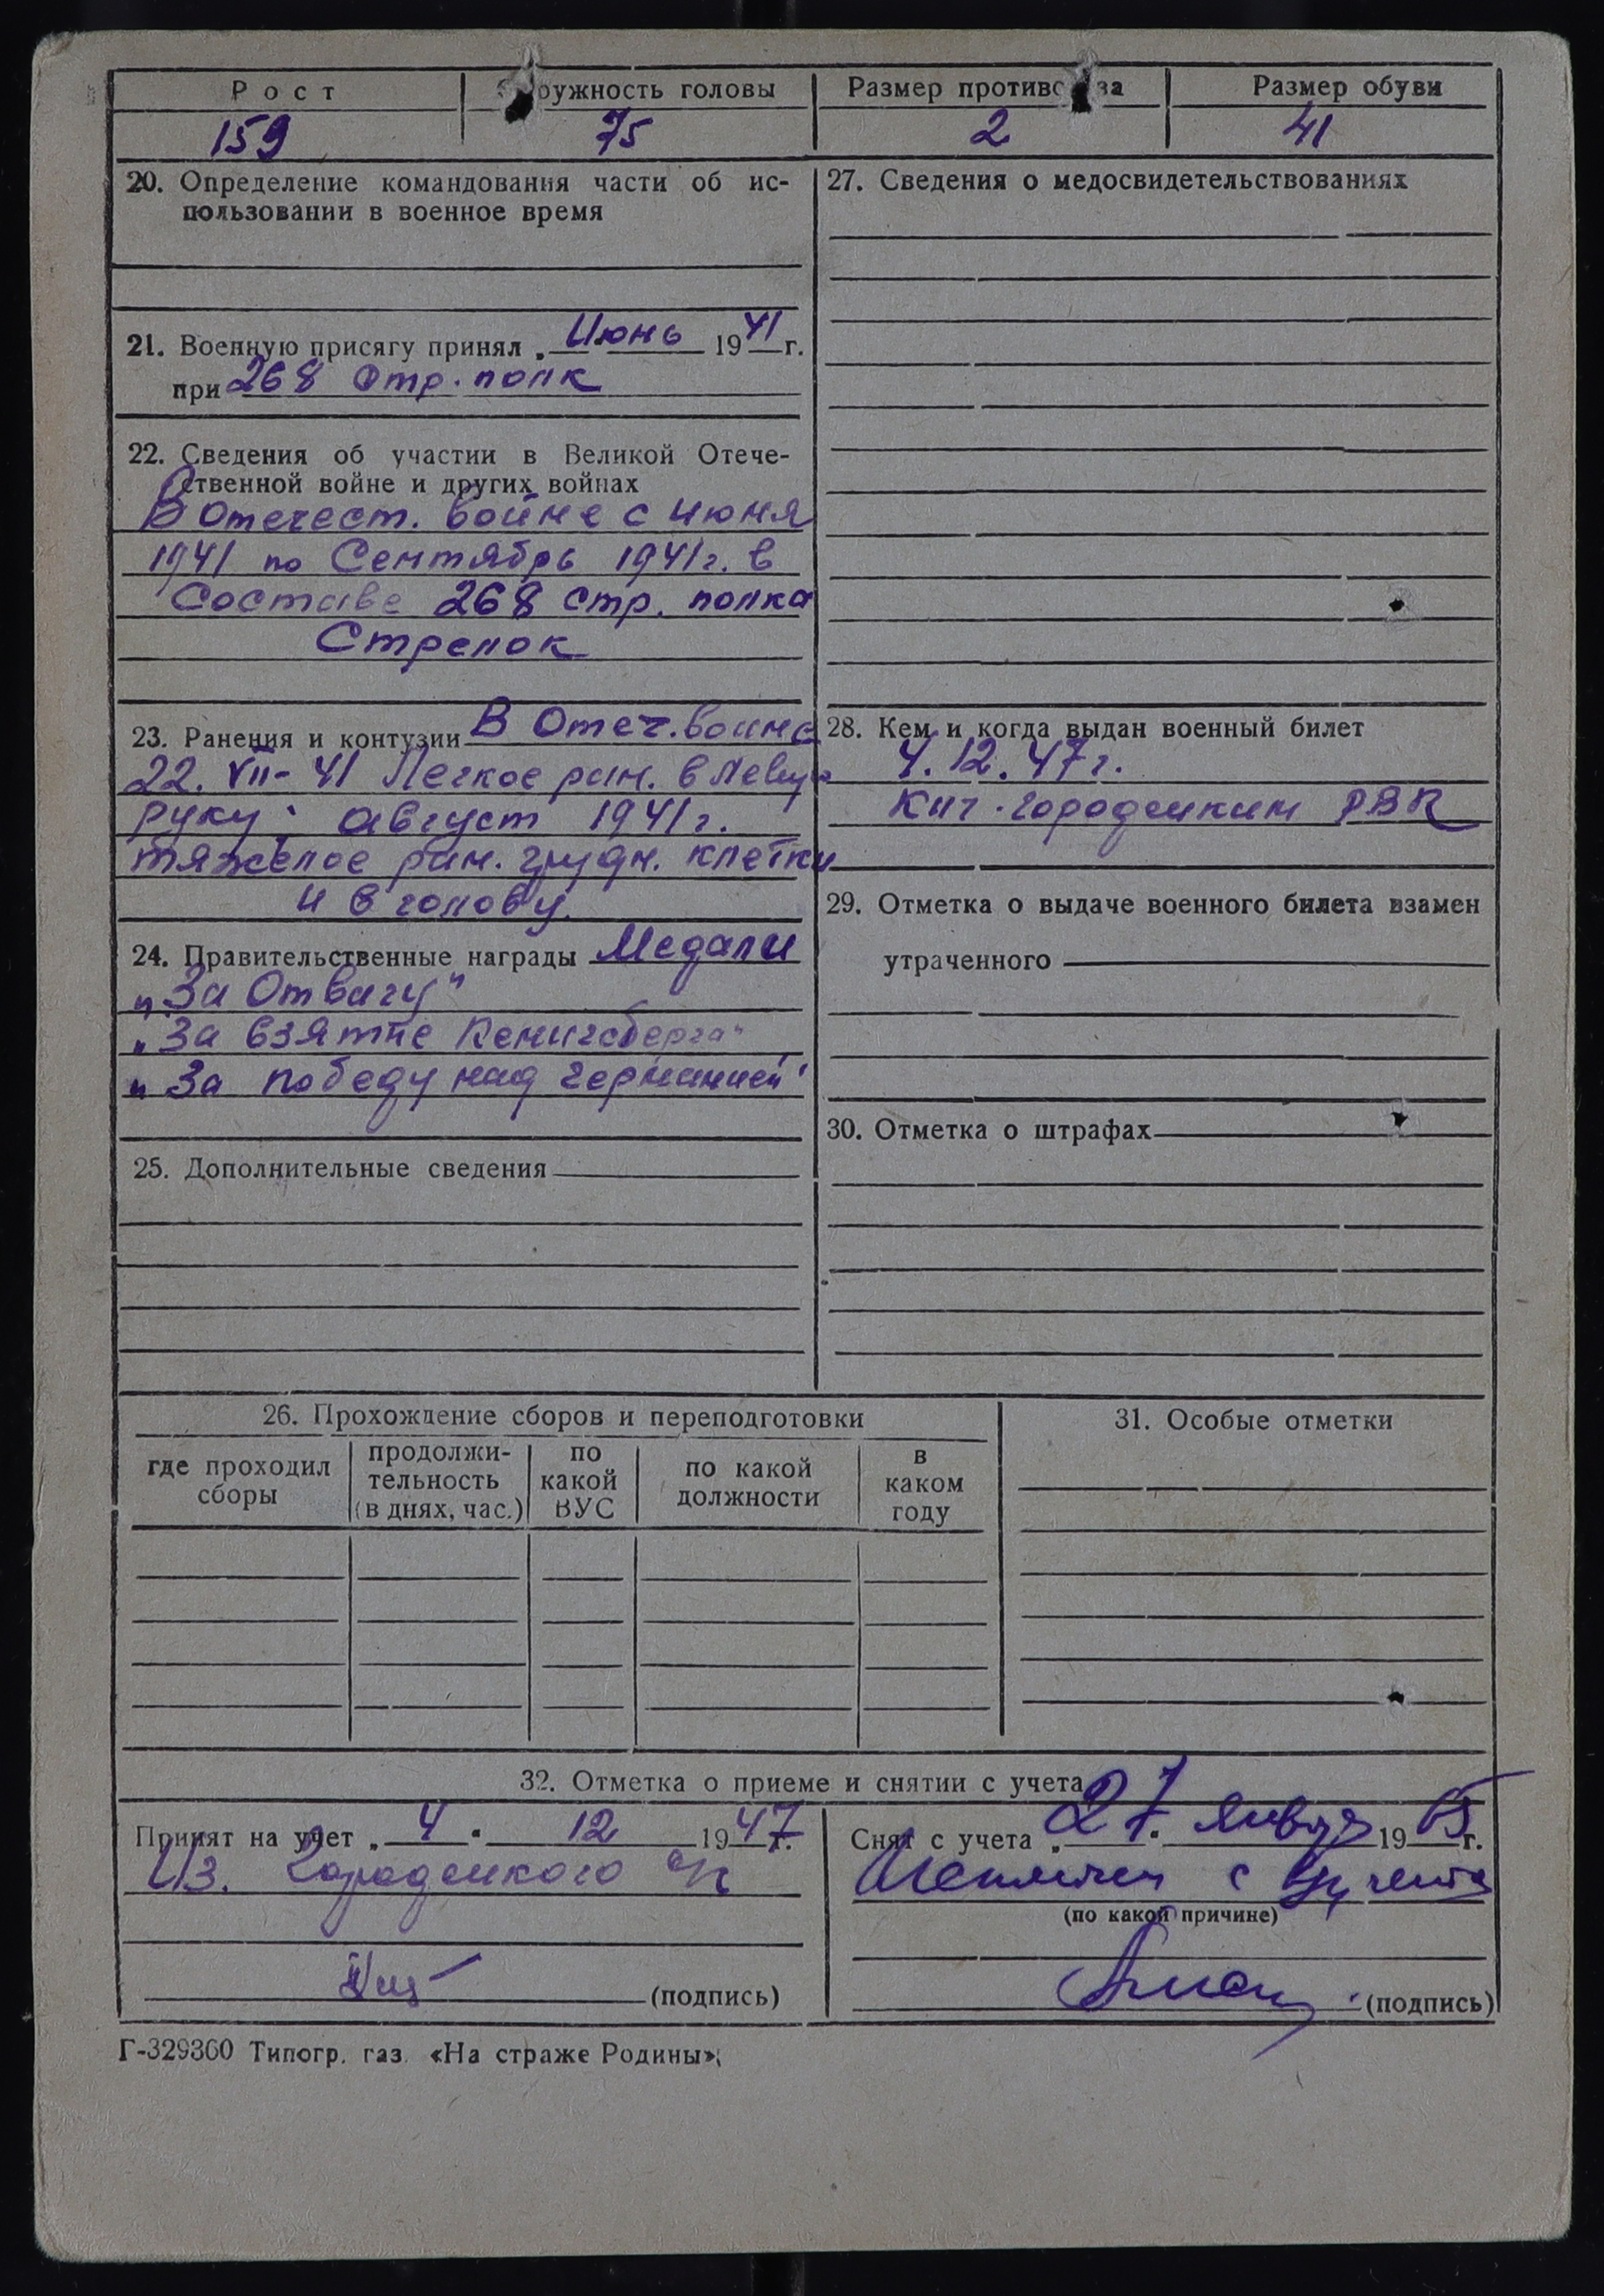 Рост
159
ружность головы
75
Размер против за
2
Размер обуви
41
20. Определение командования части об ис-
пользовании в военное время
21. Военную присягу принял „ Июнь 1941 г.
при 268 стр. полк
22. Сведения об участии в Великой Отече-
ственной войне и других войнах
В Отечест. войне с июня
1941 по Сентябрь 1941 г. в
Составе 268 стр. полка
Стрелок
23. Ранения и контузии В Отеч. войне
22. VII - 41 Легкое ран. в левую
руку. август 1941 г.
тяжелое ран. грудн. клетки
и в голову.
24. Правительственные награды Медали
„За Отвагу"
„За взятие Кенигсберга"
„За победу над германией"
25. Дополнительные сведения
27. Сведения о медосвидетельствованиях
28. Кем и когда выдан военный билет
4. 12. 47 г.
Кич-городецким РВК
29. Отметка о выдаче военного билета взамен
утраченного
30. Отметка о штрафах
26. Прохождение сборов и переподготовки
где проходил сборы
продолжи-
тельность
(в днях, час.)
по
какой
ВУС
по какой
должности
в
каком
году
31. Особые отметки
32. Отметка о приеме и снятии с учета
Принят на учет „ 4 " 12 1947 г.
Из. Городецкого с/с
(подпись)
Снят с учета „ 27 " января 1965 г.
с
(по какой причине)
(подпись)
Г-329360 Типогр. газ. «На страже Родины»;